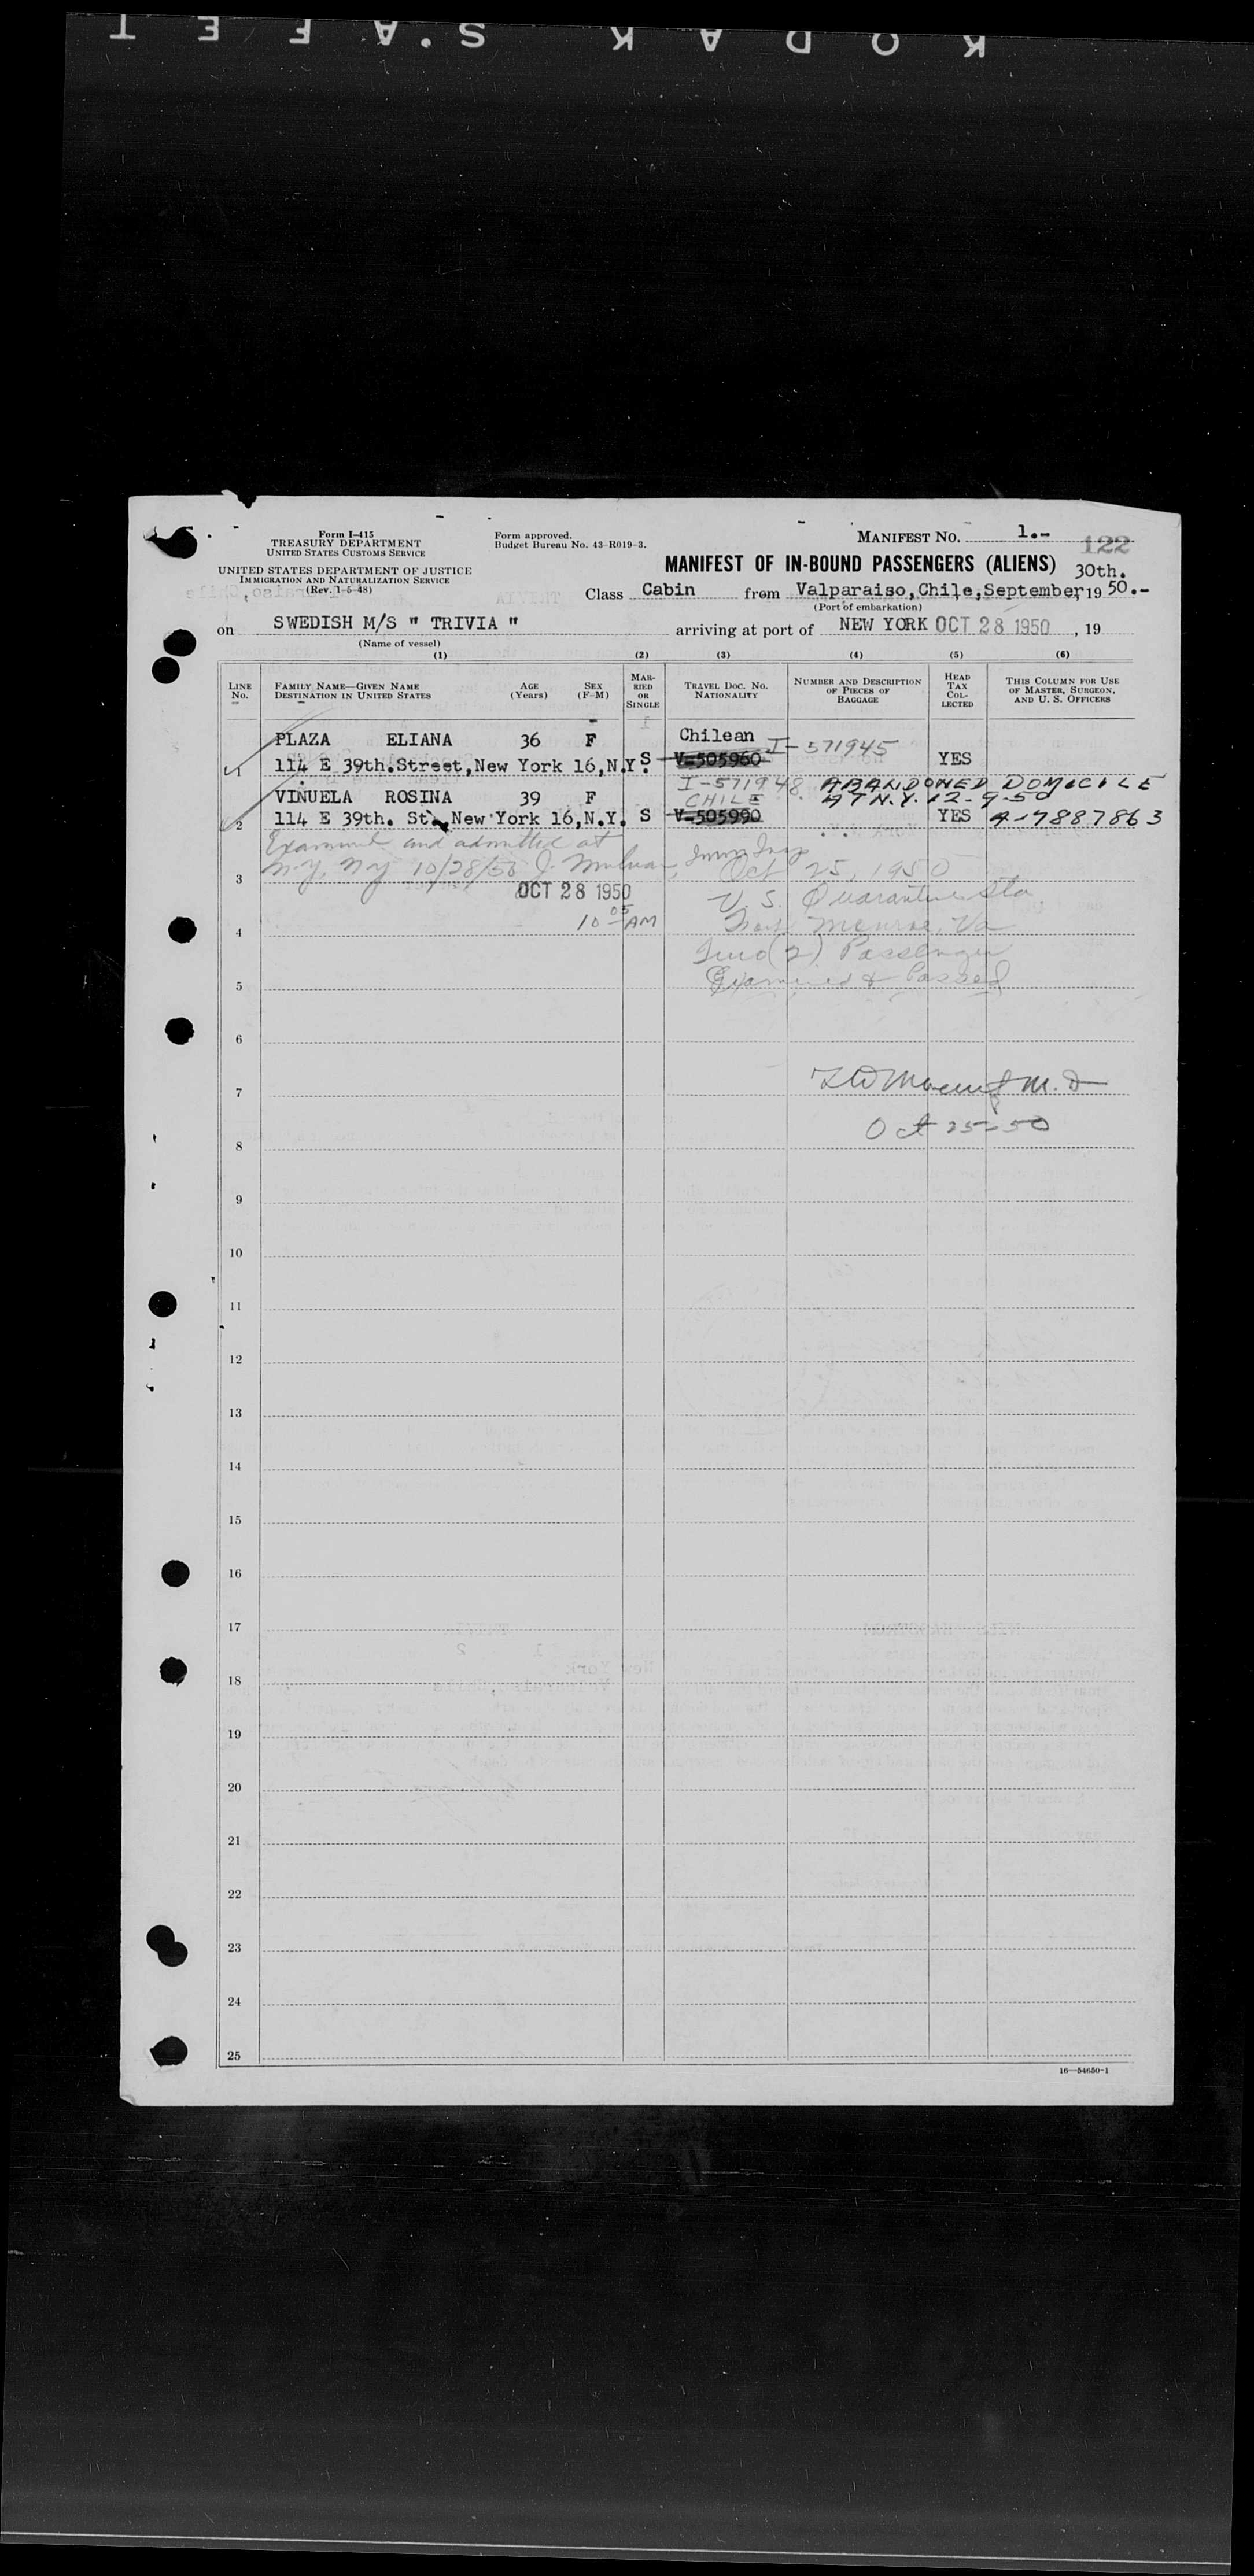 KODAK S'AFET
Form I-415
TREASURY DEPARTMENT
UNITED STATES CUSTOMS SERVICE
UNITED STATES DEPARTMENT OF JUSTICE
IMMIGRATION AND NATURALIZATION SERVICE
(Rev. 1-5-48)
Form approved.
Budget Bureau No. 43-R019-3.
MANIFEST NO. 1.-
122
MANIFEST OF IN-BOUND PASSENGERS (ALIENS)
30th.
Class Cabin from Valparaiso,Chile,September, 19 50.-
(Port of embarkation)
on SWEDISH M/S " TRIVIA " arriving at port of NEW YORK OCT 28 1950 , 19
(Name of vessel)
(1) (2) (3) (4) (5) (6)
LINE No.
FAMILY NAME—GIVEN NAME
DESTINATION IN UNITED STATES
AGE (Years)
SEX (F-M)
MARRIED OR SINGLE
TRAVEL DOC. NO. NATIONALITY
NUMBER AND DESCRIPTION OF PIECES OF BAGGAGE
HEAD TAX COLLECTED
THIS COLUMN FOR USE OF MASTER, SURGEON, AND U. S. OFFICERS
PLAZA ELIANA 36 F Chilean I-571945
1 114 E 39th.Street,New York 16,N.Y. S V=505960 YES
I-571948 ABANDONED DOMICILE
VINUELA ROSINA 39 F CHILE AT N.Y. 12-9-50
2 114 E 39th. St. New York 16,N.Y. S V=505990 YES A-7887863
Examined and admitted at
N.Y, NY 10/28/50 J. Imm Insp
3 Oct 25, 1950
OCT 28 1950
U. S. Quarantine Sta
10 05 AM
4 Fort Monroe, Va
Two (2) Passenger
5 Examined & Passed
6
7 M. D
Oct 25-50
8
9
10
11
12
13
14
15
16
17
18
19
20
21
22
23
24
25
16—54650-1